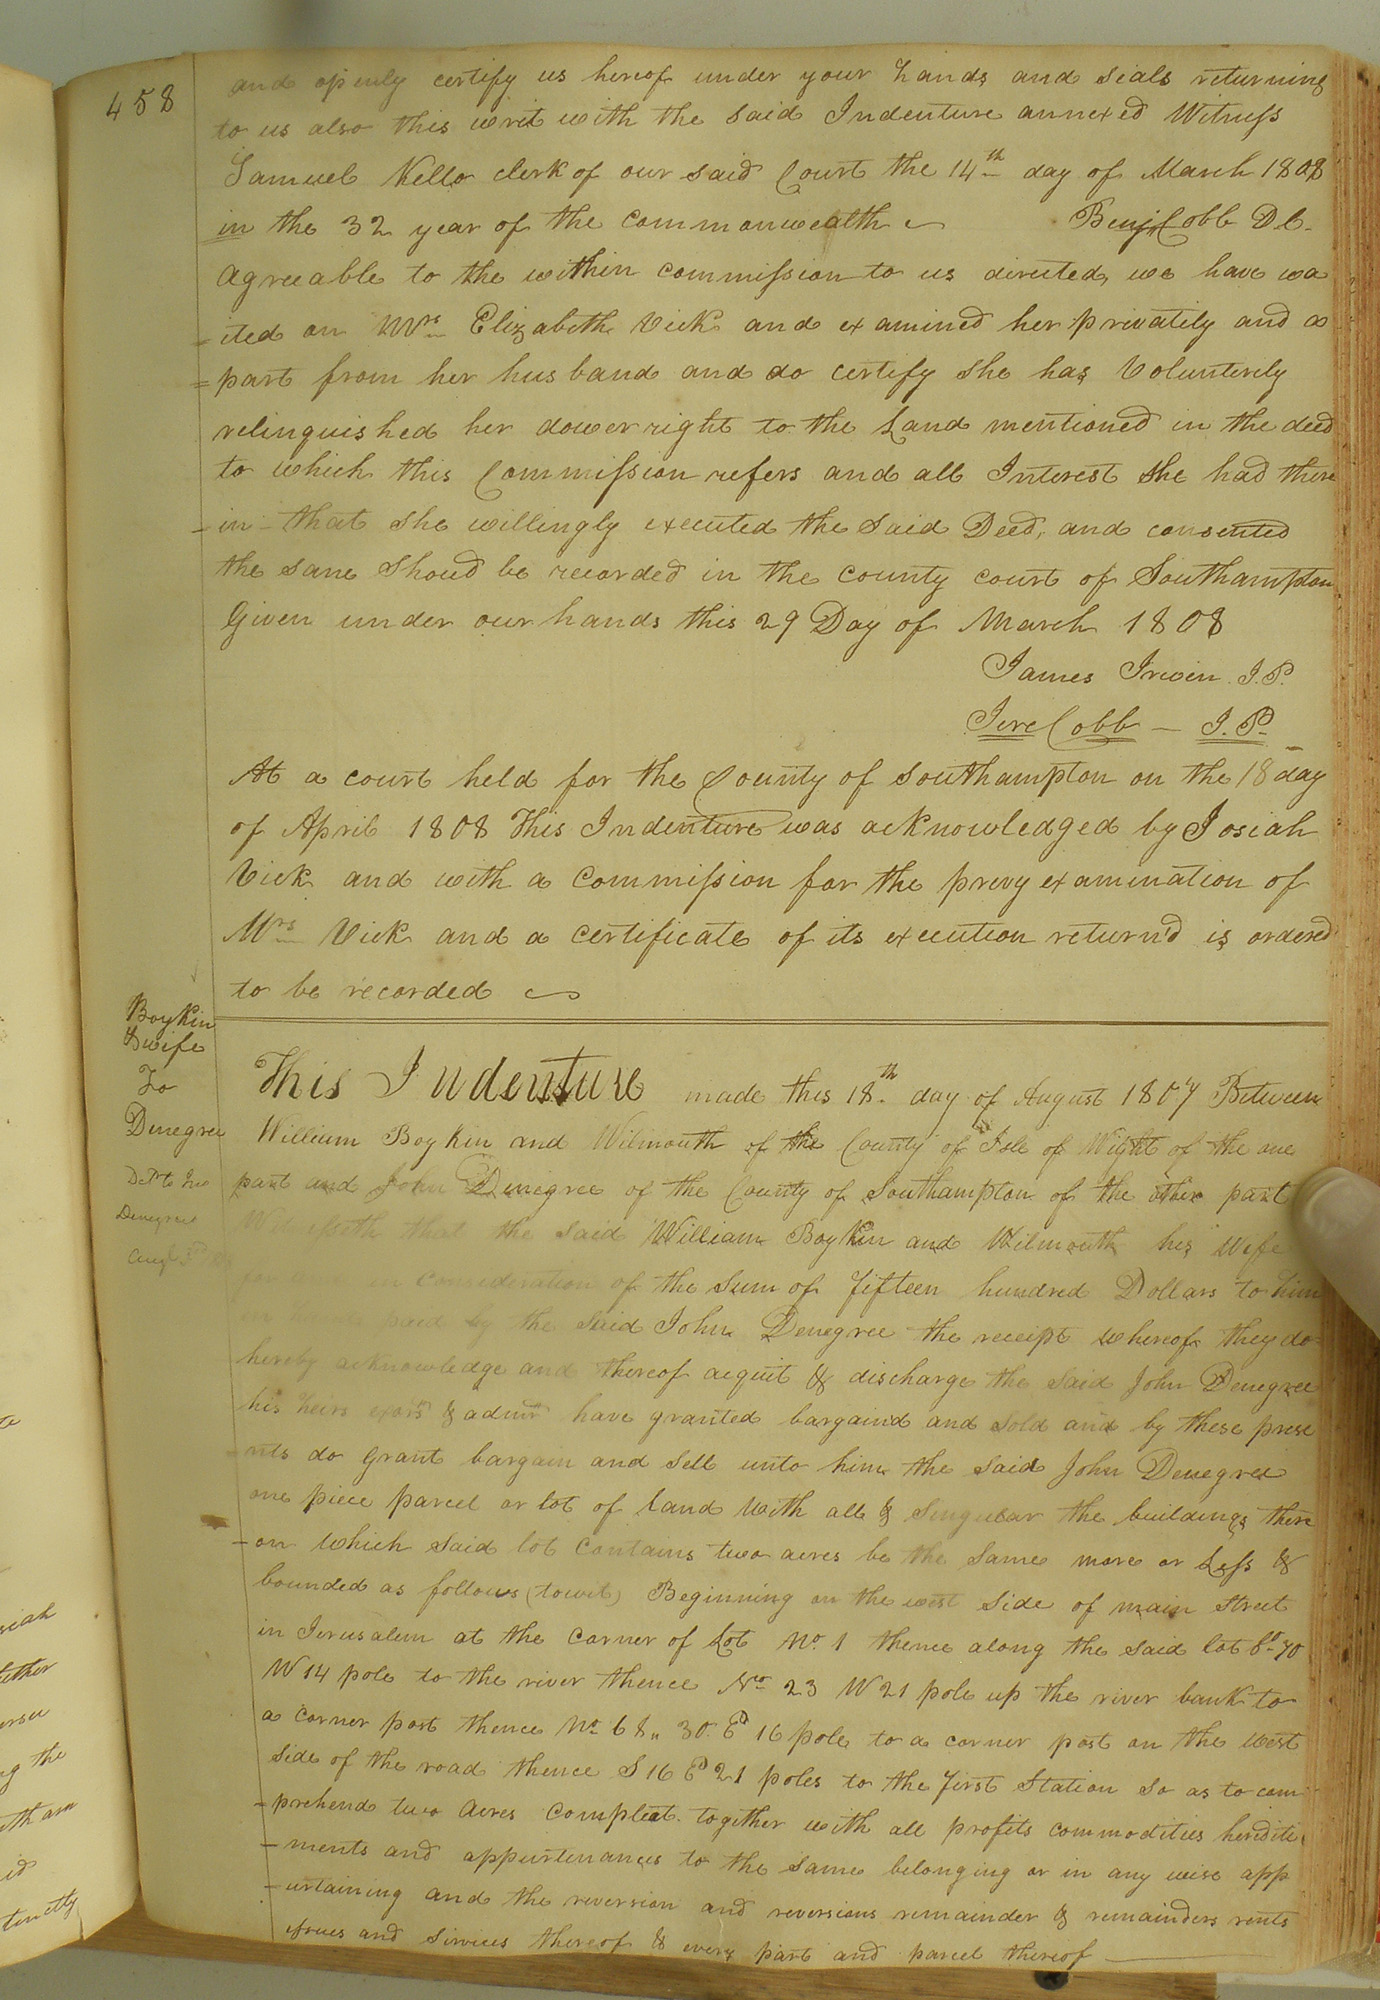 458
and openly certify us hereof under your hands and seals returning
to us also this writ with the said Indenture annexed Witness
Samuel Kello clerk of our said Court the 14th day of March 1808
in the 32 year of the commonwealth
Benj Cobb D C.
Agreeable to the within commission to us directed, we have wa
-ited on Mrs Elizabeth Vick and examined her privately and a
=part from her husband and do certify she has Volunterily
relinquished her dower right to the Land mentioned in the deed
to which this Commission refers and all Interest she had there
-in - that she willingly executed the said Deed, and consented
the same Shoud be recorded in the county court of Southampton
Given under our hands this 29 Day of March 1808
James Irwin J.P.
Jere Cobb - J.P.
At a court held for the County of Southampton on the 18 day
of April 1808 This Indenture was acknowledged by Josiah
Vick and with a commission for the privy examination of
Mrs Vick and a certificate of its execution return'd is ordered
to be recorded
Boykin
& wife
To
Denegree
Deld to Jno
Denegree
Augt 3d
This Indenture made this 18th day of August 1807 Between
William Boykin and Wilmouth of the County of Isle of Wight of the one
part and John Denegree of the County of Southampton of the other part
Witnesseth that the said William Boykin and Wilmouth his Wife
for and in consideration of the sum of fifteen hundred Dollars to him
in hand paid by the said John Denegree the receipt whereof they do
hereby acknowledge and thereof acquit & discharge the said John Denegree
his heirs exors & admrs have granted bargaind and sold and by these prese
-nts do grant bargain and sell unto him the said John Denegree
one piece parcel or lot of land with all & singular the buildings there
-on which said lot contains two acres be the same more or Less &
bounded as follows (towit) Beginning on the west side of main street
in Jerusalem at the corner of Lot No. 1 thence along the said lot So 70
W 14 pole to the river thence No 23 W 21 pole up the river bank to
a corner post thence No 68,, 30 Ed 16 pole to a corner post on the west
side of the road thence S 16 Ed 21 poles to the first Station so as to com
-prehend two acres compleat together with all profits commodities heredite
-ments and appurtenances to the same belonging or in any wise app
-urtaining and the reversion and reversions remainder & remainders rents
issues and services thereof & every part and parcel thereof